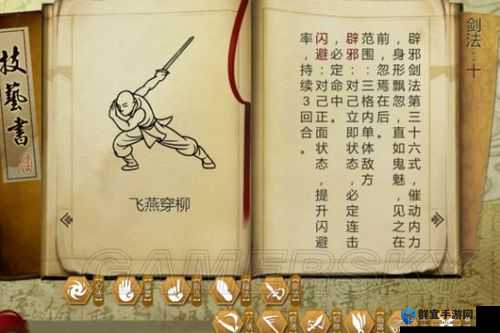 技藝書
飞燕穿柳
剑法：十
辟邪剑法第三十六式，催动内力
，身形飘忽，直如鬼魅，见之在
前，忽焉在后。
范围：三格内单体敌方
辟邪：对己立即状态，必定连击
，必定命中。
闪避：对己正面状态，提升闪避
率，持续3回合。
GAMERSKY
群宜手游网